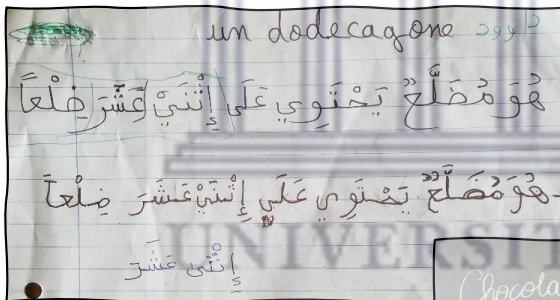 un dodecagone داوود
هُوَ مُضَلَّعٌ يَحْتَوِي عَلَى إِثْنَيْ عَشَرَ ضِلْعاً
هُوَ مُضَلَّعٌ يَحْتَوِي عَلَى إِثْنَيْ عَشَرَ ضِلْعاً
إِثْنَى عَشَرَ
UNIVERSIT
Chocola